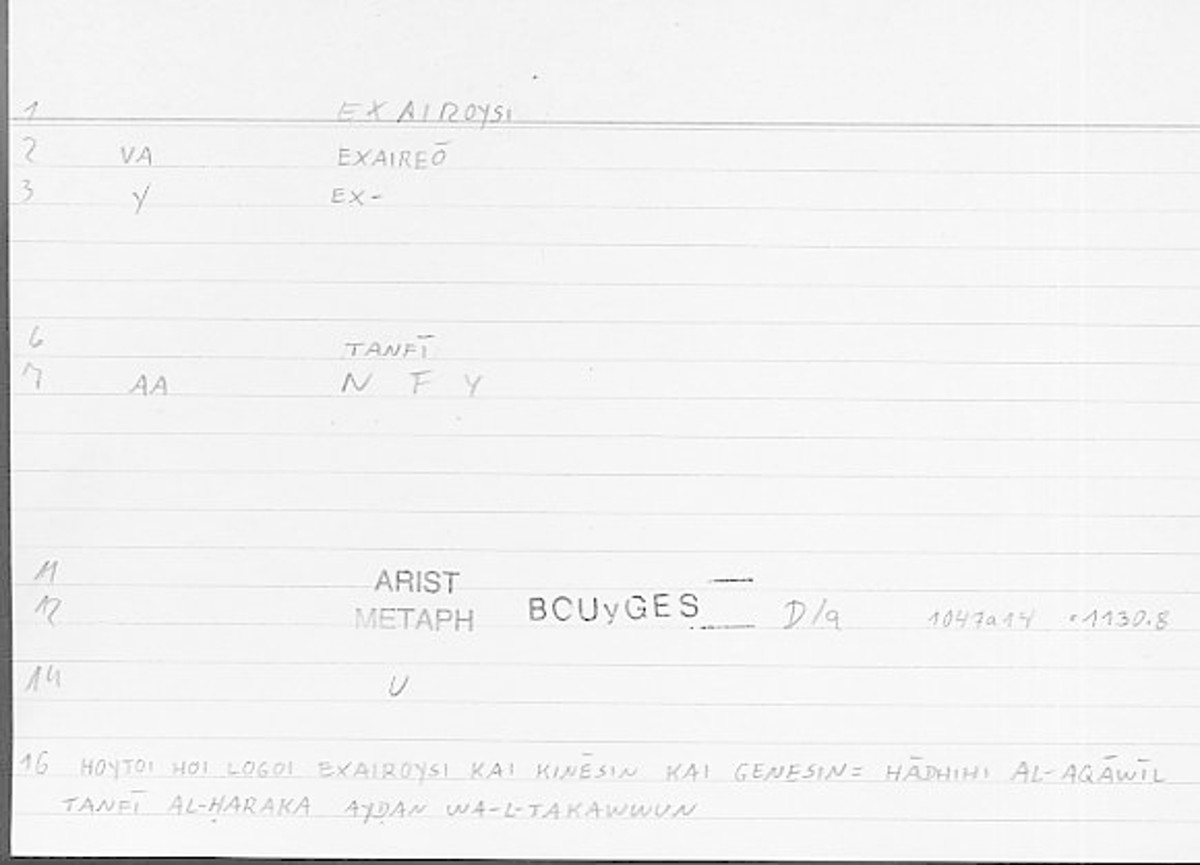 1 EXAIROYSI
2 VA EXAIREŌ
3 Y EX-
6 TANFĪ
7 AA N F Y
11 ARIST
12 METAPH BCUyGES D/q 1047a14 =1130.8
14 U
16 HOYTOI HOI LOGOI EXAIROYSI KAI KINĒSIN KAI GENESIN= HĀDHIHI AL-AQĀWĪL
TANFĪ AL-ḤARAKA AYḌAN WA-L-TAKAWWUN